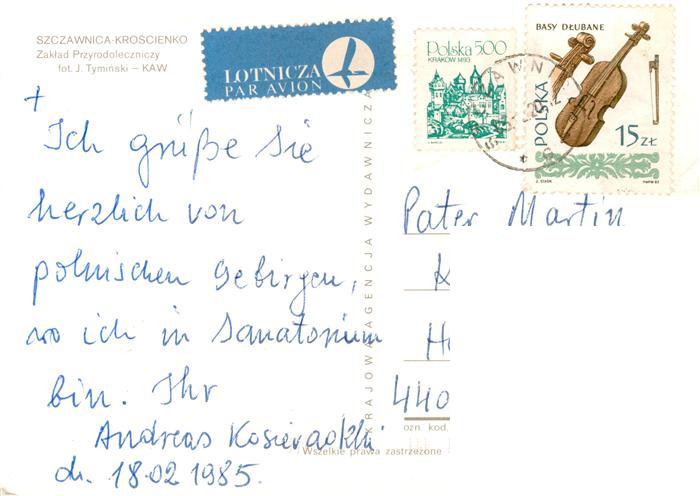 SZCZAWNICA-KROŚCIENKO
Zakład Przyrodoleczniczy
fot. J. Tymiński – KAW
LOTNICZA
PAR AVION
Polska 500
KRAKÓW 1493
BASY DŁUBANE
POLSKA
15 ZŁ
+
Ich grüße Sie
herzlich von
polnischen Gebirgen,
wo ich in Sanatorium
bin. Ihr
Andreas
dn. 18.02 1985.
KRAJOWA AGENCJA WYDAWNICZA
Pater Martin
K
H
440
ozn. kod.
Wszelkie prawa zastrzeżone